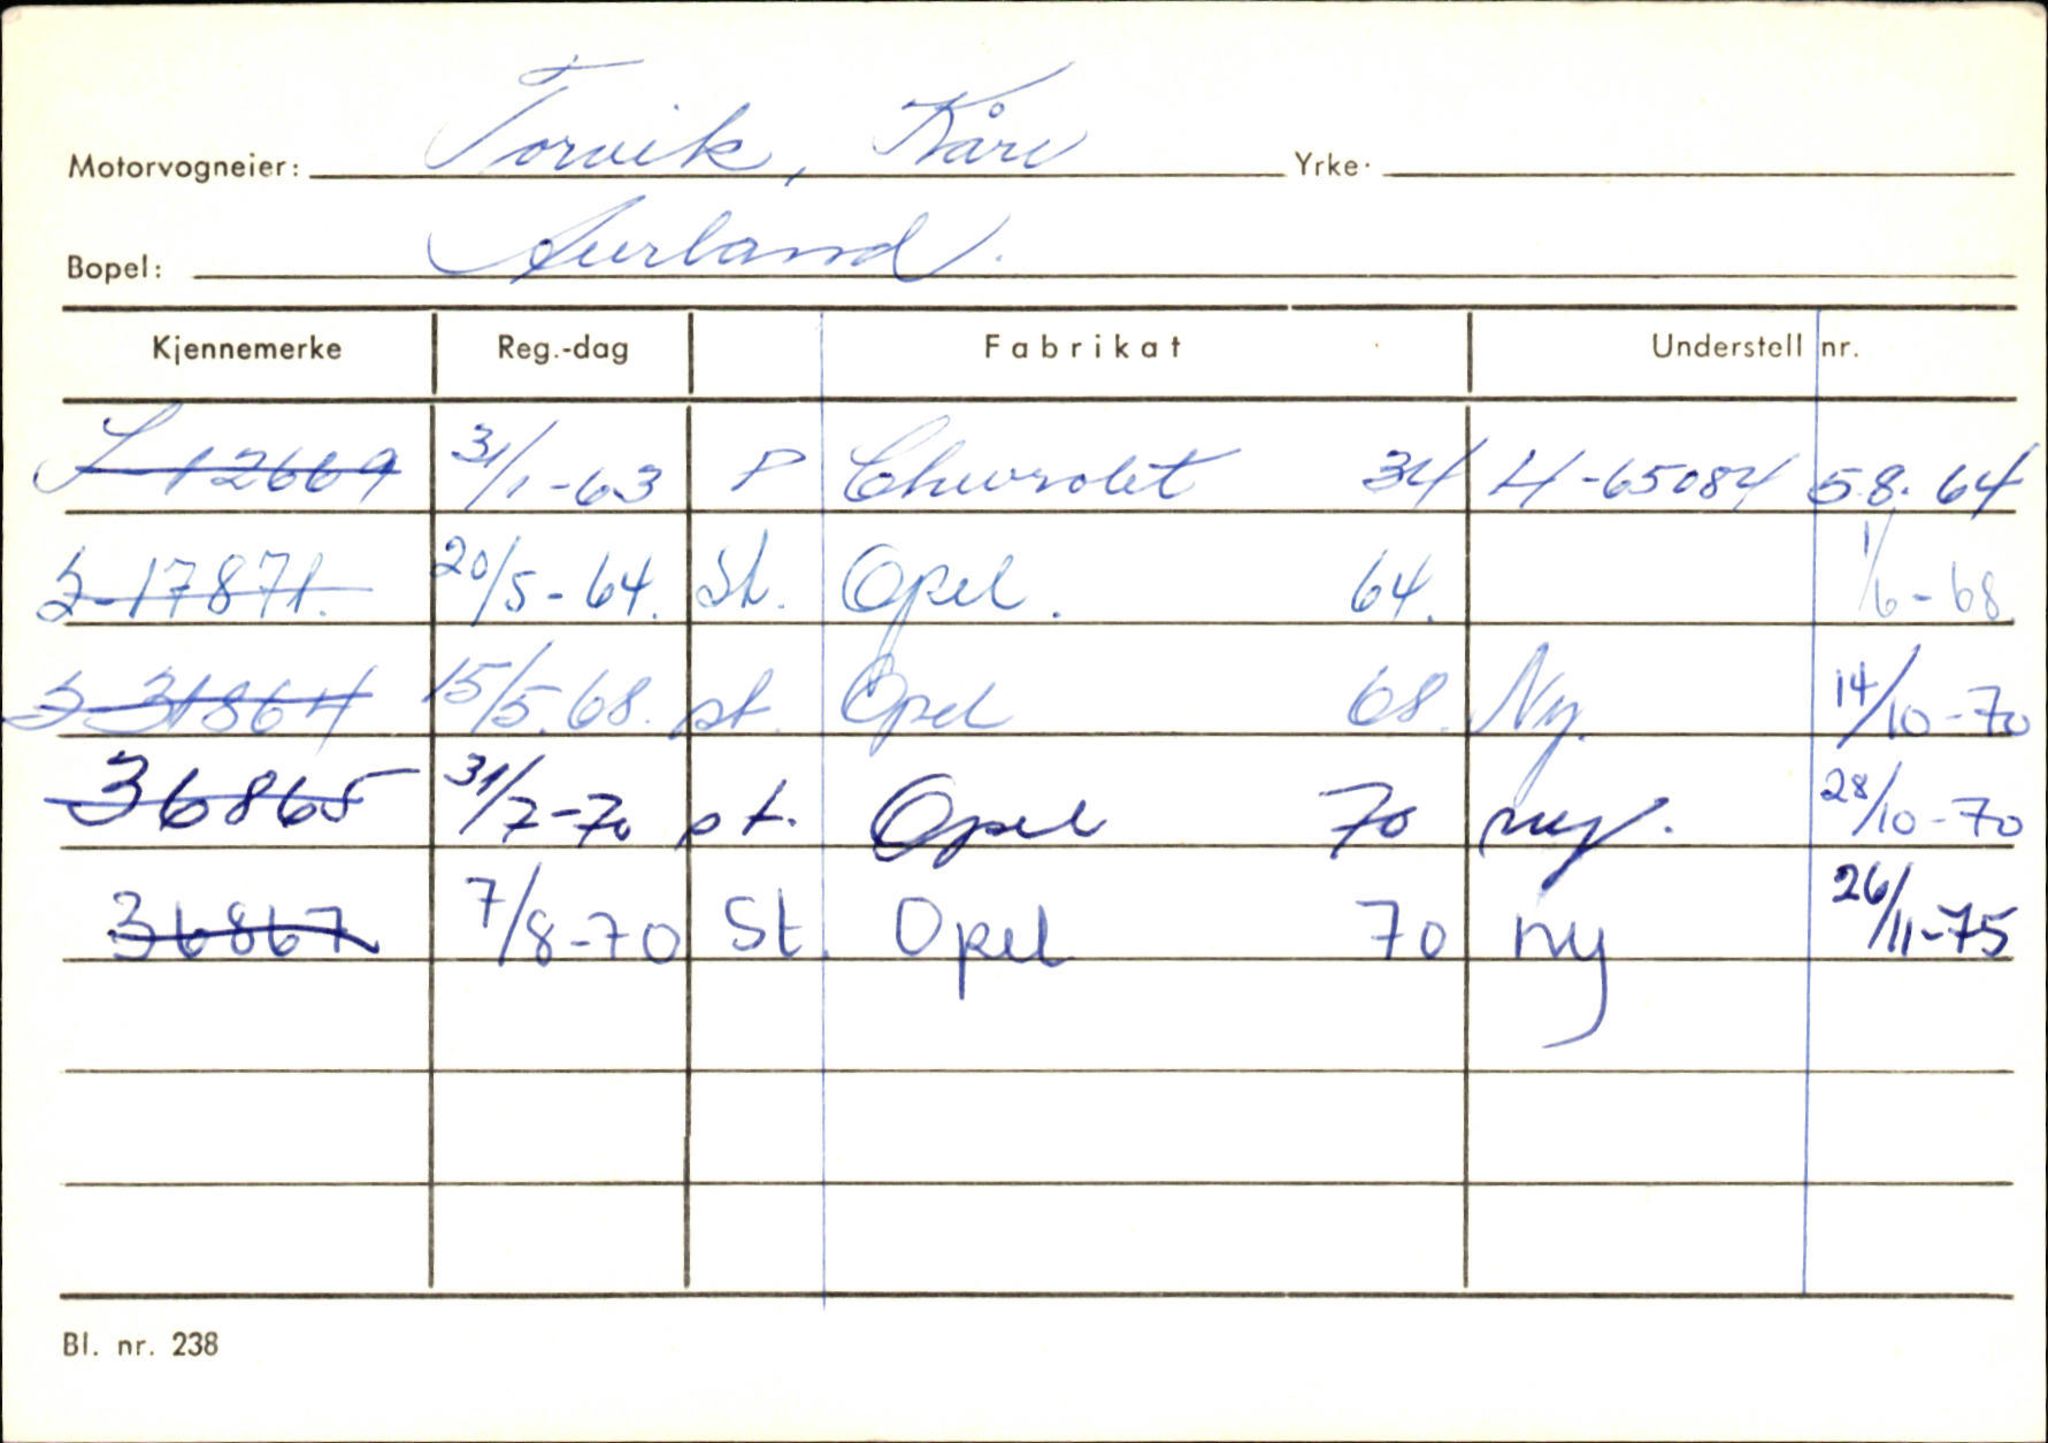 Motorvogneier: Torvik, Kåre Yrke.
Bopel: Aurland.
Kjennemerke Reg.-dag Fabrikat Understell nr.
S-12669 31/1-63 P Chevrolet 34 H-65084 5.8.64
S-17871. 20/5-64. St. Opel. 64. 1/6-68
S-31864 15/5.68. st. Opel 68. Ny. 14/10-70
36865 31/7-70 st. Opel 70 ny. 28/10-70
36867 7/8-70 St. Opel 70 ny 26/11-75
Bl. nr. 238